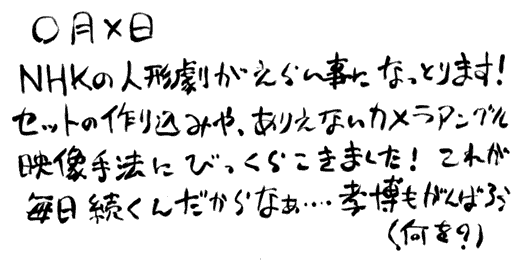 〇月×日
NHKの人形劇がえらい事になっとります!
セットの作り込みや、ありえないカメラアングル
映像手法にびっくらこきました! これが
毎日続くんだからなぁ‥‥孝博もがんばろう
(何を?)